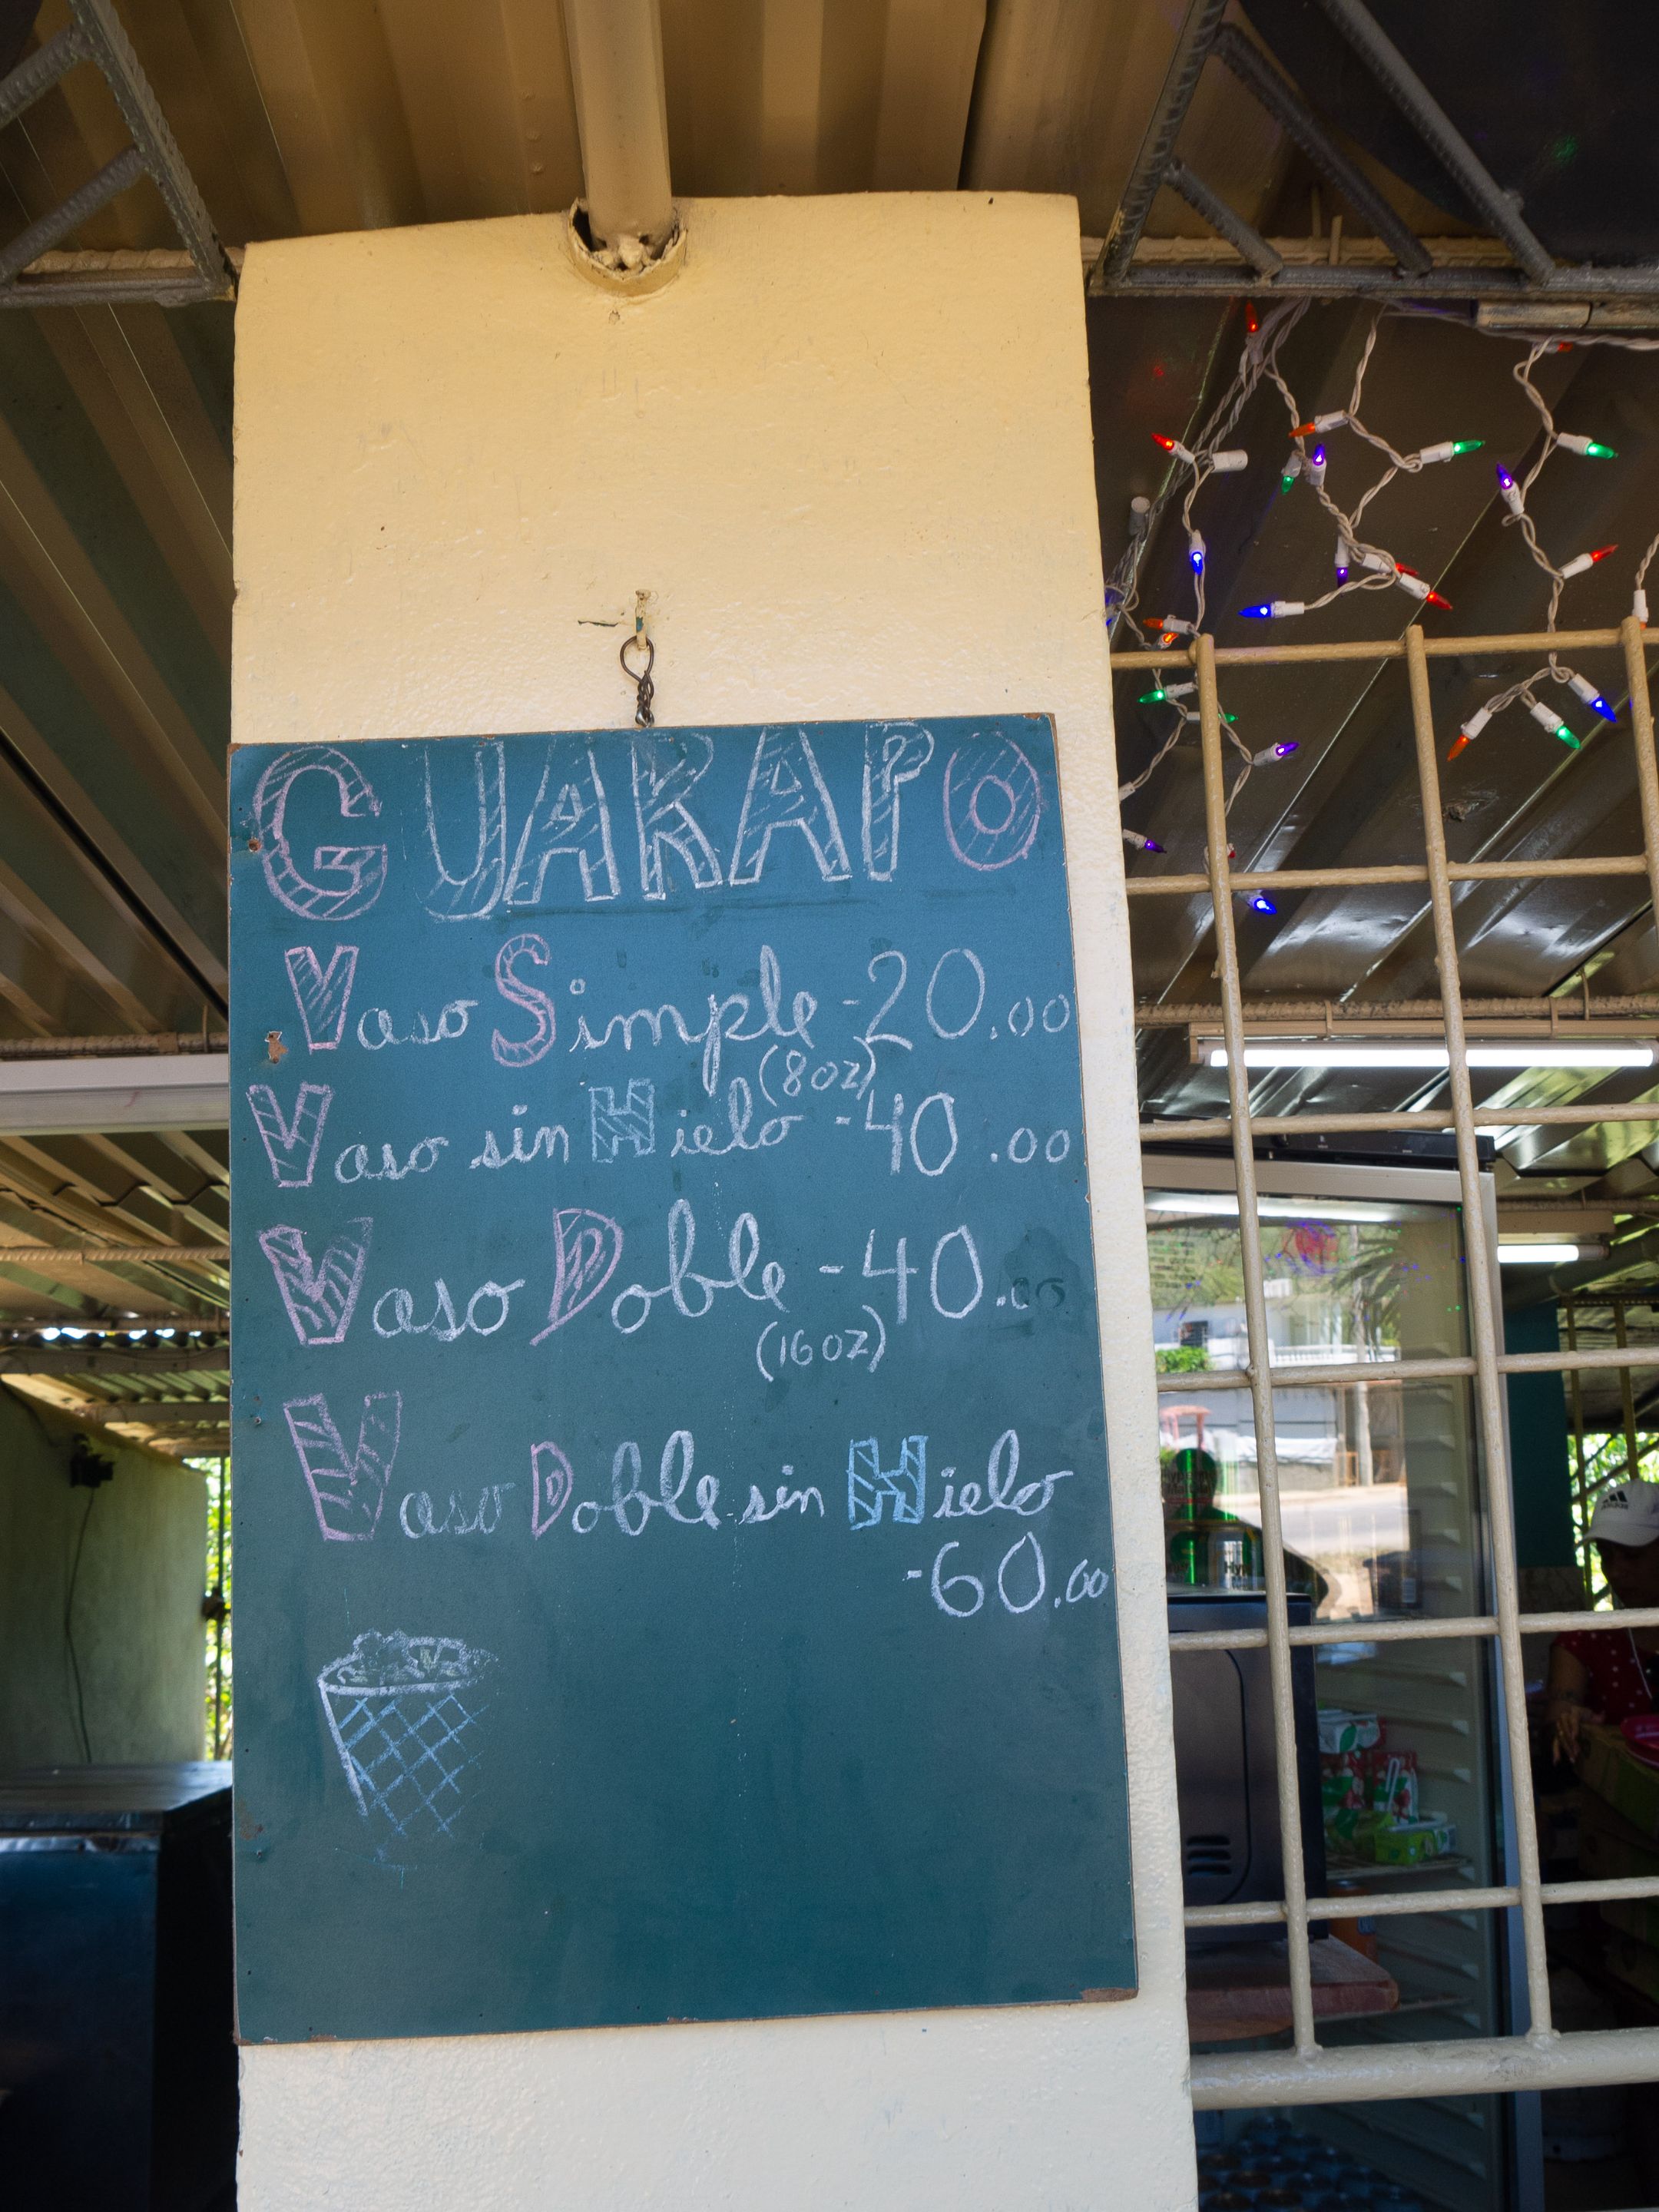 GUARAPO
Vaso Simple - 20.00
(8oz)
Vaso sin Hielo - 40.00
Vaso Doble - 40.00
(16oz)
Vaso Doble sin Hielo
- 60.00